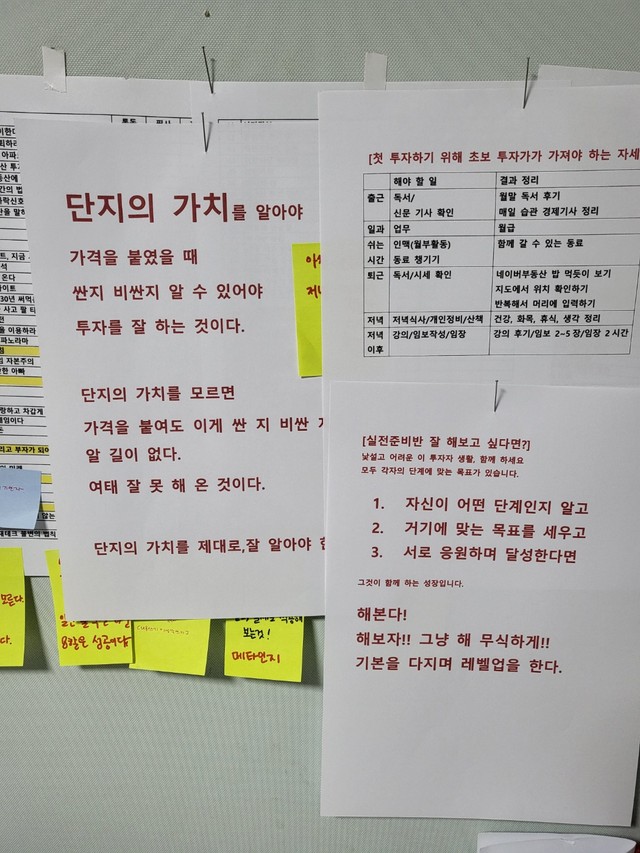 단지의 가치를 알아야
가격을 붙였을 때
싼지 비싼지 알 수 있어야
투자를 잘 하는 것이다.
단지의 가치를 모르면
가격을 붙여도 이게 싼 지 비싼
알 길이 없다.
여태 잘 못 해 온 것이다.
단지의 가치를 제대로,잘 알아야
[첫 투자하기 위해 초보 투자가가 가져야 하는 자세
해야 할 일 결과 정리
출근 독서/ 월말 독서 후기
신문 기사 확인 매일 습관 경제기사 정리
일과 업무 월급
쉬는 인맥(월부활동) 함께 갈 수 있는 동료
시간 동료 챙기기
퇴근 독서/시세 확인 네이버부동산 밥 먹듯이 보기
지도에서 위치 확인하기
반복해서 머리에 입력하기
저녁 저녁식사/개인정비/산책 건강, 화목, 휴식, 생각 정리
저녁 강의/임보작성/임장 강의 후기/임보 2~5장/임장 2시간
이후
[실전준비반 잘 해보고 싶다면?]
낯설고 어려운 이 투자자 생활, 함께 하세요
모두 각자의 단계에 맞는 목표가 있습니다.
1. 자신이 어떤 단계인지 알고
2. 거기에 맞는 목표를 세우고
3. 서로 응원하며 달성한다면
그것이 함께 하는 성장입니다.
해본다!
해보자!! 그냥 해 무식하게!!
기본을 다지며 레벨업을 한다.
산 투
간의 법
락신호
온다
30년 써먹
사고 팔 티
을 이용하라
파노라마
자본주의
한 아빠
랑하고 차갑게
리고 부자가 되어
재테크 불변의 법칙
모른다.
다.
8할은 성공이다
보는것!
메타인지